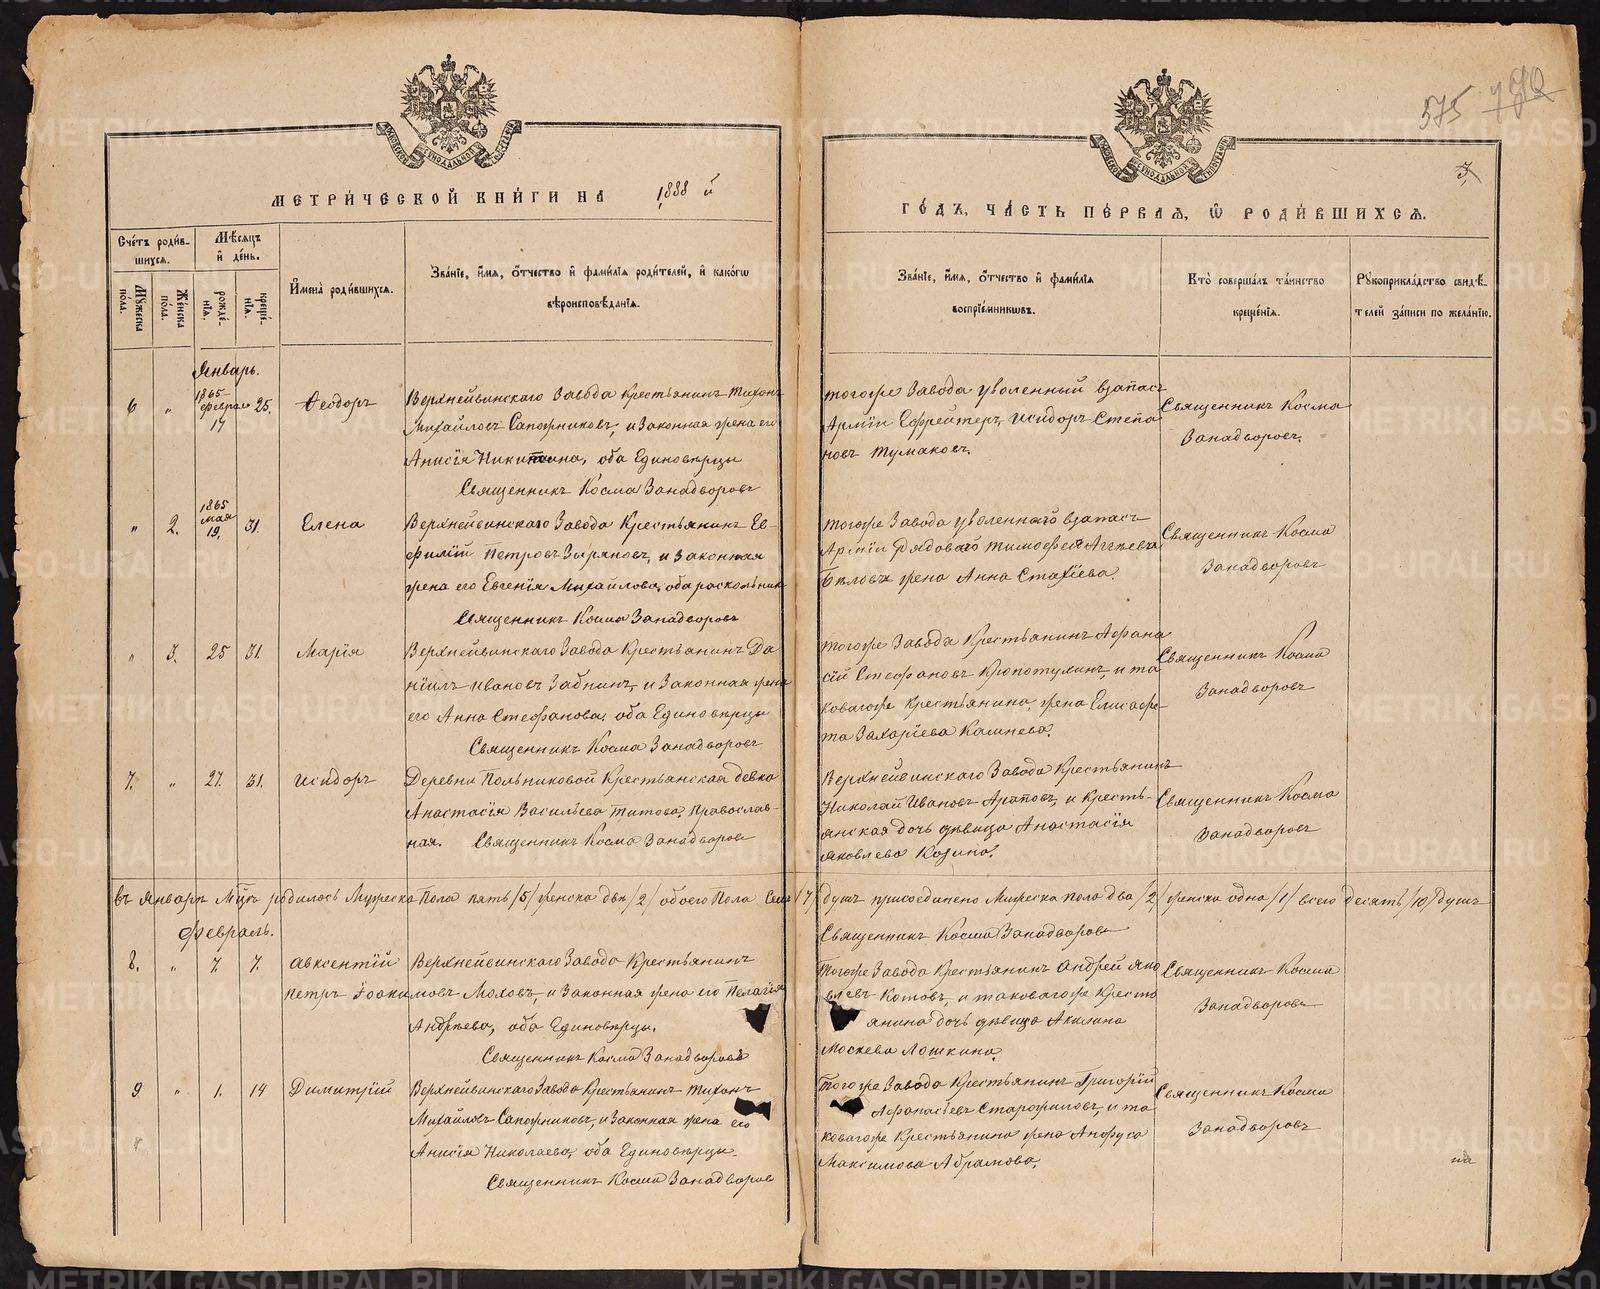 575 780
3,
МЕТРИ́ЧЕСКОЙ КНИ́ГИ НА 1888 й
ГО́ДЪ, ЧА́СТЬ ПЕ́РВАѦ, Ѡ҆ РОДИ́ВШИХСѦ.
Сче́тъ роди́в-
шихсѧ.
Мꙋ́жеска по́ла.
Же́нска по́ла.
Мѣ́сѧцъ
и҆ де́нь.
рожде́-
нїѧ.
креще́-
нїѧ.
И҆мена̀ роди́вшихсѧ.
Зва́нїе, и҆́мѧ, ѻ҆́тчество и҆ фами́лїѧ роди́телей, и҆ како́гѡ
вѣроисповѣ́данїѧ.
Зва́нїе, и҆́мѧ, ѻ҆́тчество и҆ фами́лїѧ
воспрїе́мникѡвъ.
Кто̀ соверша́лъ та́инство
креще́нїѧ.
Рꙋкоприкла́дство свидѣ́-
телей за́писи по жела́нїю.
Январь.
6 „ 1865 Февраля 14 25. Ѳеодоръ
Верхнейвинскаго Завода Крестьянинъ Тихонъ
Михайловъ Сапожниковъ, и Законная жена его
Анисія Никитина, оба Единовѣрцы
Священникъ Косма Занадворовъ
тогоже Завода уволенный взапасъ
Арміи Ефрейтеръ Исидоръ Степа
новъ Тумаковъ.
Священникъ Косма
Занадворовъ.
„ 2. 1865 мая 19. 31. Елена
Верхнейвинскаго Завода Крестьянинъ Ев-
фимій Петровъ Зыряновъ, и Законная
жена его Евгенія Михайлова, оба раскольник
Священникъ Косма Занадворовъ
тогоже Завода уволеннаго взапасъ
Арміи Рядоваго Тимофея Агѣева
Бѣловъ жена Анна Стахіева.
Священникъ Косма
Занадворовъ
„ 3. 25 31. Марія
Верхнейвинскаго Завода Крестьянинъ Да
ніилъ Ивановъ Забнинъ, и Законная жена
его Анна Стефанова, оба Единовѣрцы
Священникъ Косма Занадворовъ
тогоже Завода Крестьянинъ Афана
сій Стефановъ Кропотухинъ, и та
коваго же Крестьянина, жена Елисаве-
та Захаріева Кашнева.
Священникъ Косма
Занадворовъ
7. „ 27. 31. Исидоръ
Деревни Польниковой Крестьянская девка
Анастасія Васильева Титова, Православ-
ная. Священникъ Косма Занадворовъ
Верхнейвинскаго Завода Крестьянинъ
Николай Ивановъ Араповъ, и Кресть-
янская дочь дѣвица Анастасія
Яковлева Козина.
Священникъ Косма
Занадворовъ
въ Январѣ Мцѣ родилось Мужеска Пола пять /5/ женска двѣ /2/ обоего Пола Семь /7/ душъ присоединено Мужеска пола два /2/ женска одна /1/ всего десять /10/ душъ
Священникъ Косма Занадворовъ
Февраль.
8. „ 7. 7. Авксентій
Верхнейвинскаго Завода Крестьянинъ
Петръ Іоакимовъ Моховъ, и Законная жена его Пелагія
Андреева, оба Единовѣрцы.
Священникъ Косма Занадворовъ
Тогоже Завода Крестьянинъ Андрей Яко
влевъ Котовъ, и таковаго же Кресть
янина дочь дѣвица Акилина
Москева Лошкина.
Священникъ Косма
Занадворовъ
9 „ 1. 14 Димитрій
Верхнейвинскаго Завода Крестьянинъ Тихонъ
Михайловъ Сапожниковъ, и Законная жена его
Анисія Николаева, оба Единовѣрцы
Священникъ Косма Занадворовъ
Тогоже Завода Крестьянинъ Григорій
Афанасьевъ Старожиловъ, и та
коваго же Крестьянина жена Анфуса
Максимова Абрамова.
Священникъ Косма
Занадворовъ
па